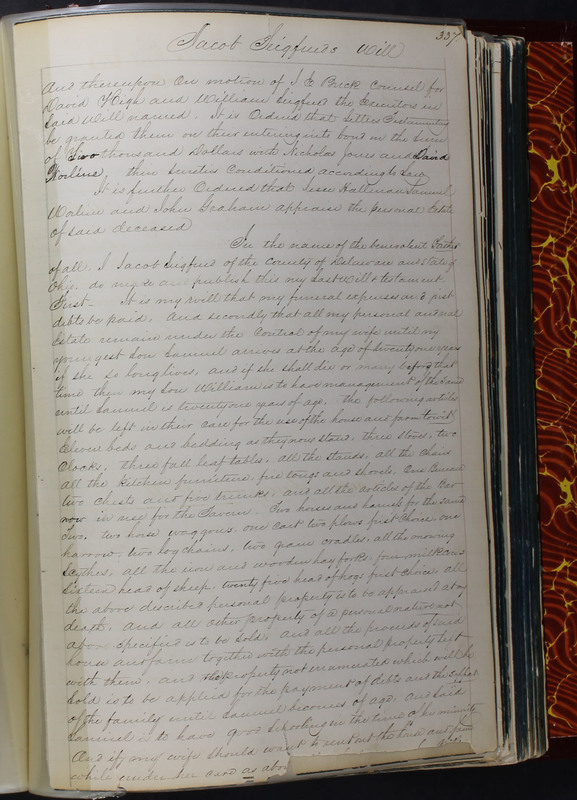 337
Jacob Siegfried's Will
And thereupon On motion of J E Buck Counsel for
David High and William Sigfried the Executors in
said Will named. It is Ordered that letters Testamentary
be granted them on their entering into bond in the sum
of Two thousand Dollars with Nicholas Jones and David
their sureties Conditioned according to Law
It is further Ordered that Jesse Hallman Samuel
and John Graham appraise the personal Estate
of said deceased
In the name of the benevolent Father
of all. I Jacob Sigfried of the County of Delaware and State of
Ohio. do make and publish this my Last Will & testament.
First - It is my will that my funeral expenses and just
debts be paid. And secondly that all my personal and real
Estate remain under the Control of my wife until my
youngest Son Samuel arrives at the age of twenty one years
if she so long lives, and if she shall die or marry before that
time then my Son William is to have management of the same
until Samuel is twenty one years of age. the following articles
will be left in their care for the use of the house and farm towit;
Eleven beds and bedding as they now stand, three stoves, two
Clocks, three fall leaf tables, all the stands, all the chairs
all the kitchen furniture, fire tongs and shovels, One Bureau
two chests and five trunks, and all the articles of the Bar
now in use for the Tavern. Two horses and harness for the same
Two, two horse waggons, one cart two plows first choice, one
harrow, two log chains, two grain cradles, all the mowing
Scythes, all the iron and wooden hay forks, four milk cows
Sixteen head of sheep, twenty five head of hogs first choice, all
the above described personal property is to be appraised at my
death, and all other property of a personal nature not
above specified is to be sold. And all the proceeds of said
house and farm together with the personal property left
with them, and the property not enumerated which will be
sold is to be applied for the payment of debts and the support
of the family until Samuel becomes of age, and said
Samuel is to have good Schooling in the time of his minority
And if my wife should want to rent out the and farm
while under her care as above